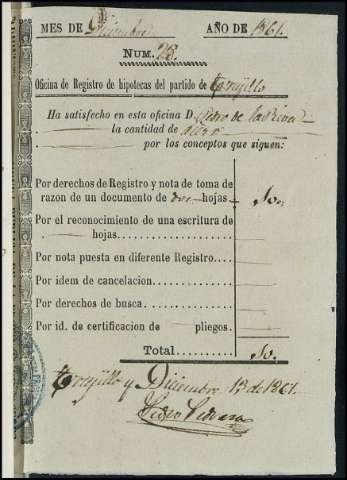 MES DE Diciembre AÑO DE 1861.
NUM. 28.
Oficina de Registro de hipotecas del partido de Trujillo
Ha satisfecho en esta oficina D. Pedro de la Riva
la cantidad de
por los conceptos que siguen:
Por derechos de Registro y nota de toma de
razon de un documento de dos hojas
Por el reconocimiento de una escritura de
— hojas
Por nota puesta en diferente Registro
Por idem de cancelacion
Por derechos de busca
Por id. de certificacion de — pliegos.
Total
Trujillo y Diciembre 13 de 1861.